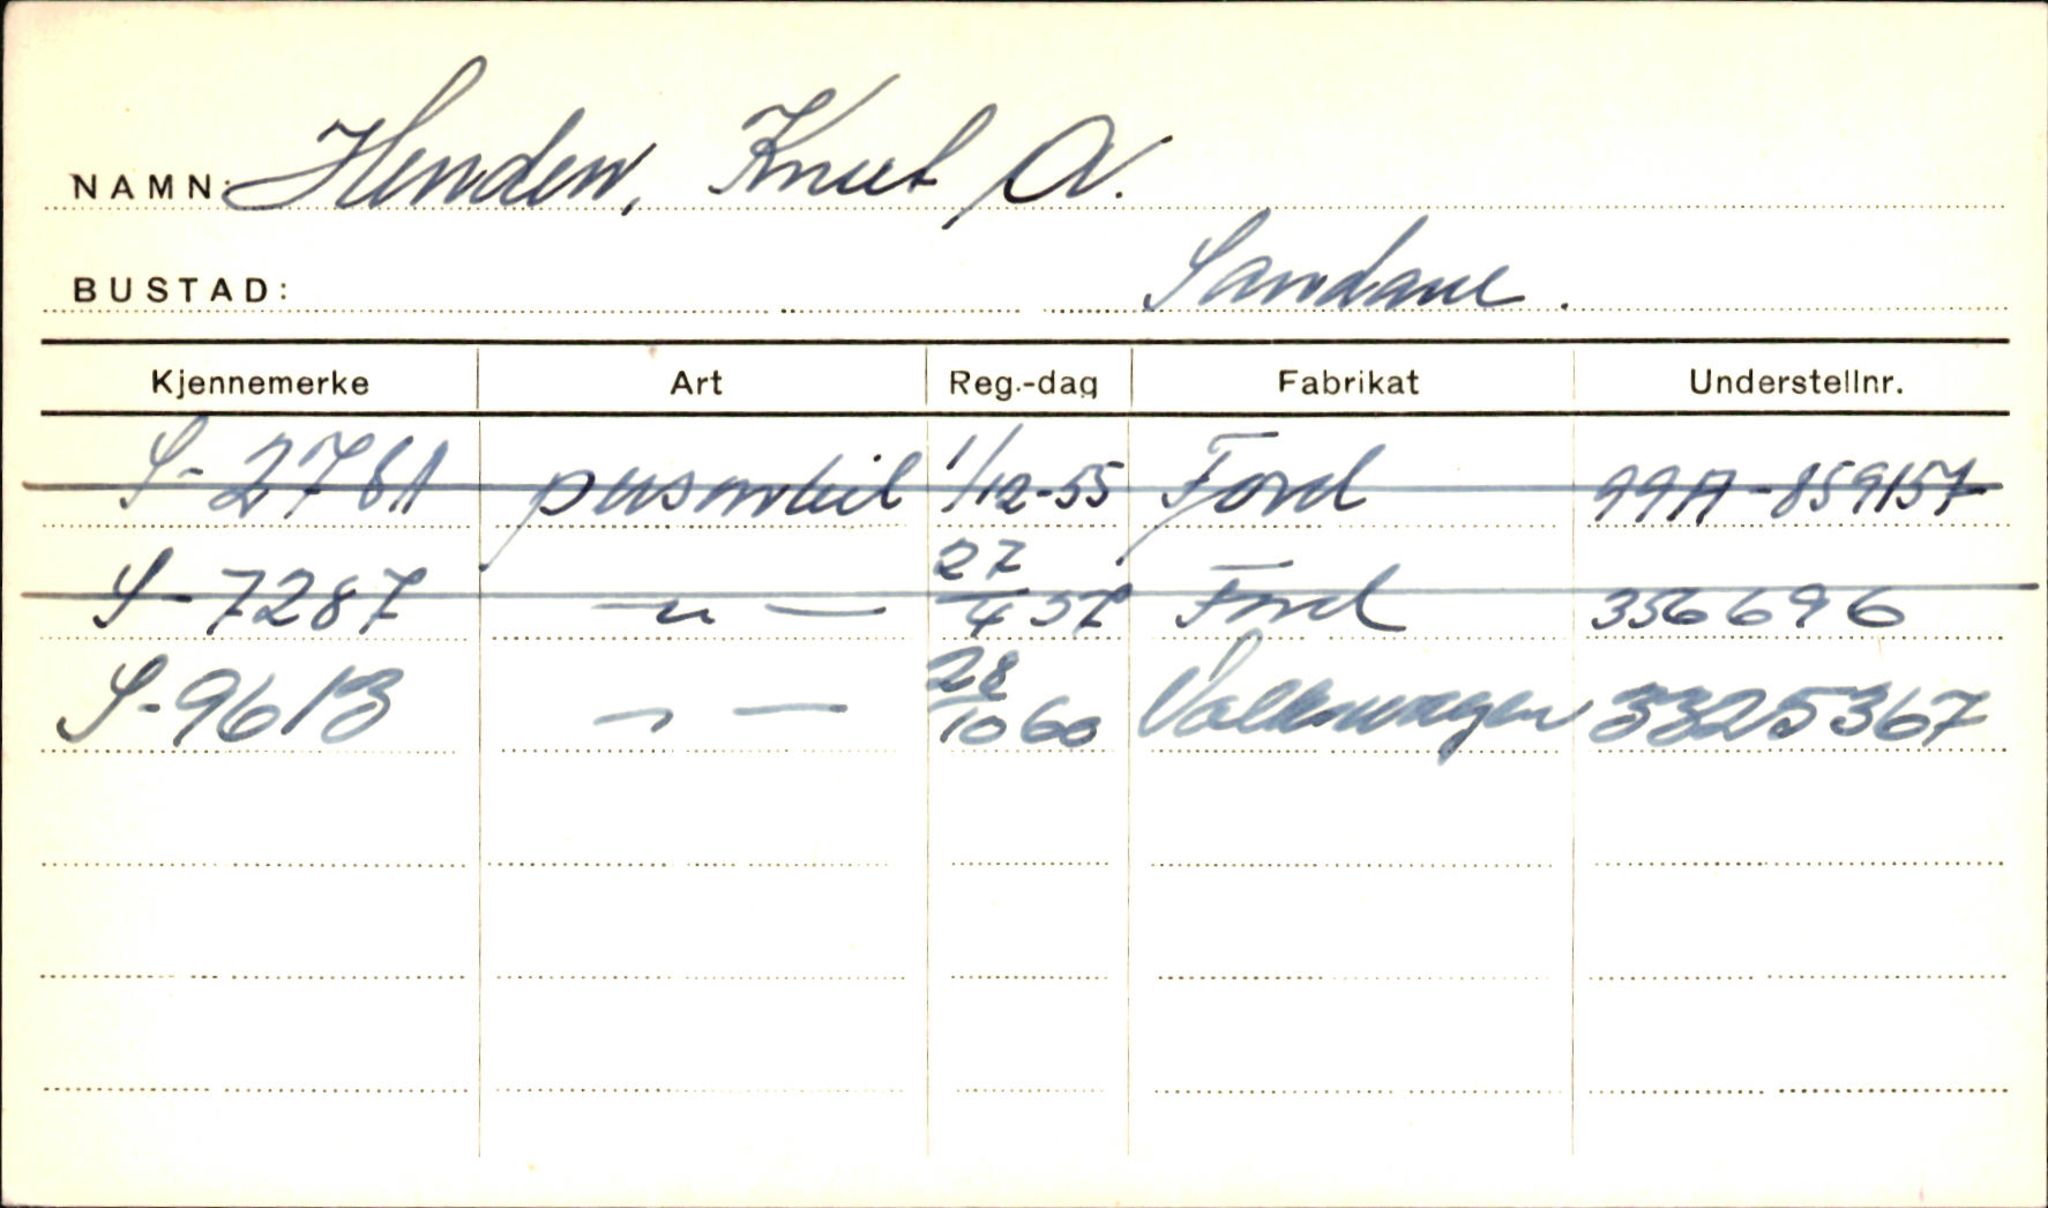 NAMN: Henden, Knut A.
BUSTAD: Sandane.
Kjennemerke Art Reg.-dag Fabrikat Understellnr.
S-2781 personbil 1/12-55 Ford 99A-859157
S-7287 —"— 27/4 57 Ford 356696
S-9613 —"— 28/10 60 Volkswagen 3325367